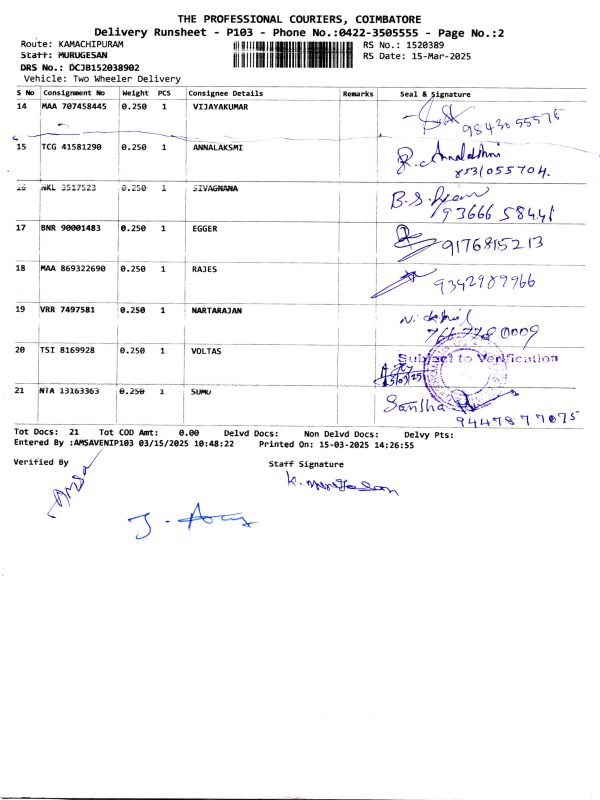 THE PROFESSIONAL COURIERS, COIMBATORE
Delivery Runsheet - P103 - Phone No.:0422-3505555 - Page No.:2
Route: KAMACHIPURAM RS No.: 1520389
Staff: MURUGESAN RS Date: 15-Mar-2025
DRS No.: DCJB152038902
Vehicle: Two Wheeler Delivery
S No Consignment No Weight PCS Consignee Details Remarks Seal & Signature
14 MAA 707458445 0.250 1 VIJAYAKUMAR
9843055575
15 TCG 41581290 0.250 1 ANNALAKSMI R. Annalakshmi
8531055704.
16 NKL 3517523 0.250 1 SIVAGNANA B.S.
93666 58441
17 BNR 90001483 0.250 1 EGGER 9176815213
18 MAA 869322690 0.250 1 RAJES 9342989966
19 VRR 7497581 0.250 1 NARTARAJAN
7667780009
20 TSI 8169928 0.250 1 VOLTAS Subject to Verification
15/03/25
21 NTA 13163363 0.250 1 SUMU Santha
9447877075
Tot Docs: 21 Tot COD Amt: 0.00 Delvd Docs: Non Delvd Docs: Delvy Pts:
Entered By :AMSAVENIP103 03/15/2025 10:48:22 Printed On: 15-03-2025 14:26:55
Verified By Staff Signature
Amsa K. Murugesan